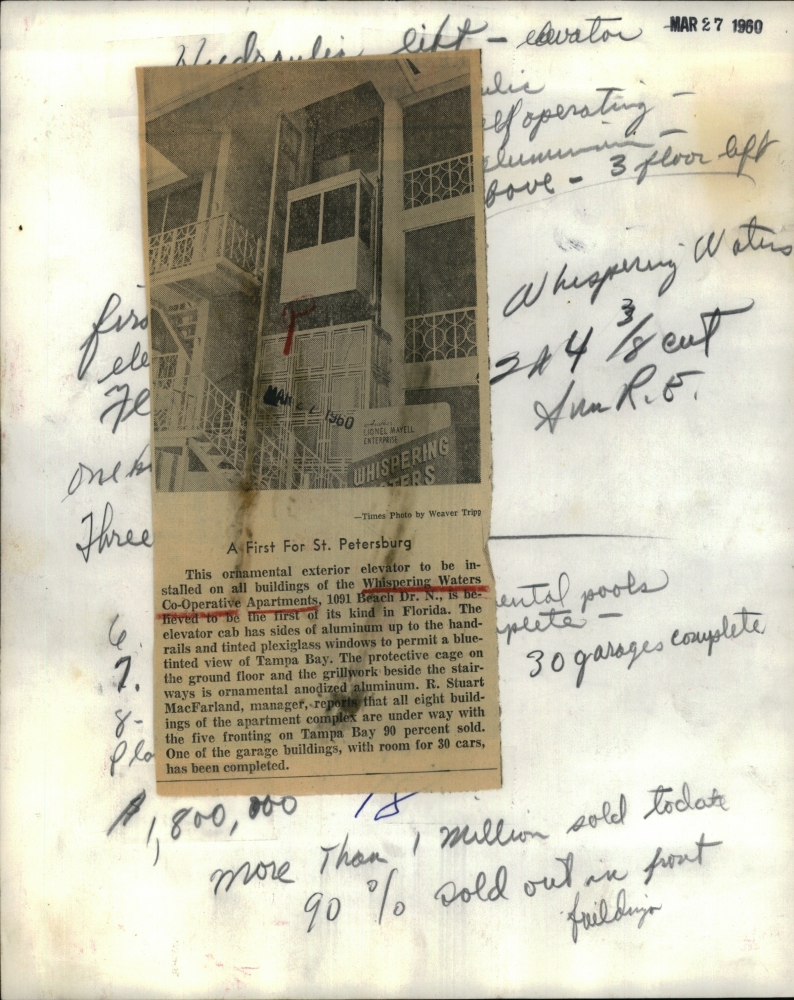 MAR 27 1960
Hydraulic lift - elevator
self operating -
aluminum -
above - 3 floor lift
Whispering Waters
2 A 4 3/8 cut
Sun R. E.
firs
ele
Fl
one
Three
MAR 27 1960
LIONEL MAYELL
ENTERPRISE
WHISPERING
WATERS
—Times Photo by Weaver Tripp
A First For St. Petersburg
This ornamental exterior elevator to be in-
stalled on all buildings of the Whispering Waters
Co-Operative Apartments, 1091 Beach Dr. N., is be-
lieved to be the first of its kind in Florida. The
elevator cab has sides of aluminum up to the hand-
rails and tinted plexiglass windows to permit a blue-
tinted view of Tampa Bay. The protective cage on
the ground floor and the grillwork beside the stair-
ways is ornamental anodized aluminum. R. Stuart
MacFarland, manager, reports that all eight build-
ings of the apartment complex are under way with
the five fronting on Tampa Bay 90 percent sold.
One of the garage buildings, with room for 30 cars,
has been completed.
ental pools
plete -
30 garages complete
6.
7.
8-
$1,800,000
18
more Than 1 million sold todate
90 % sold out in front
buildings